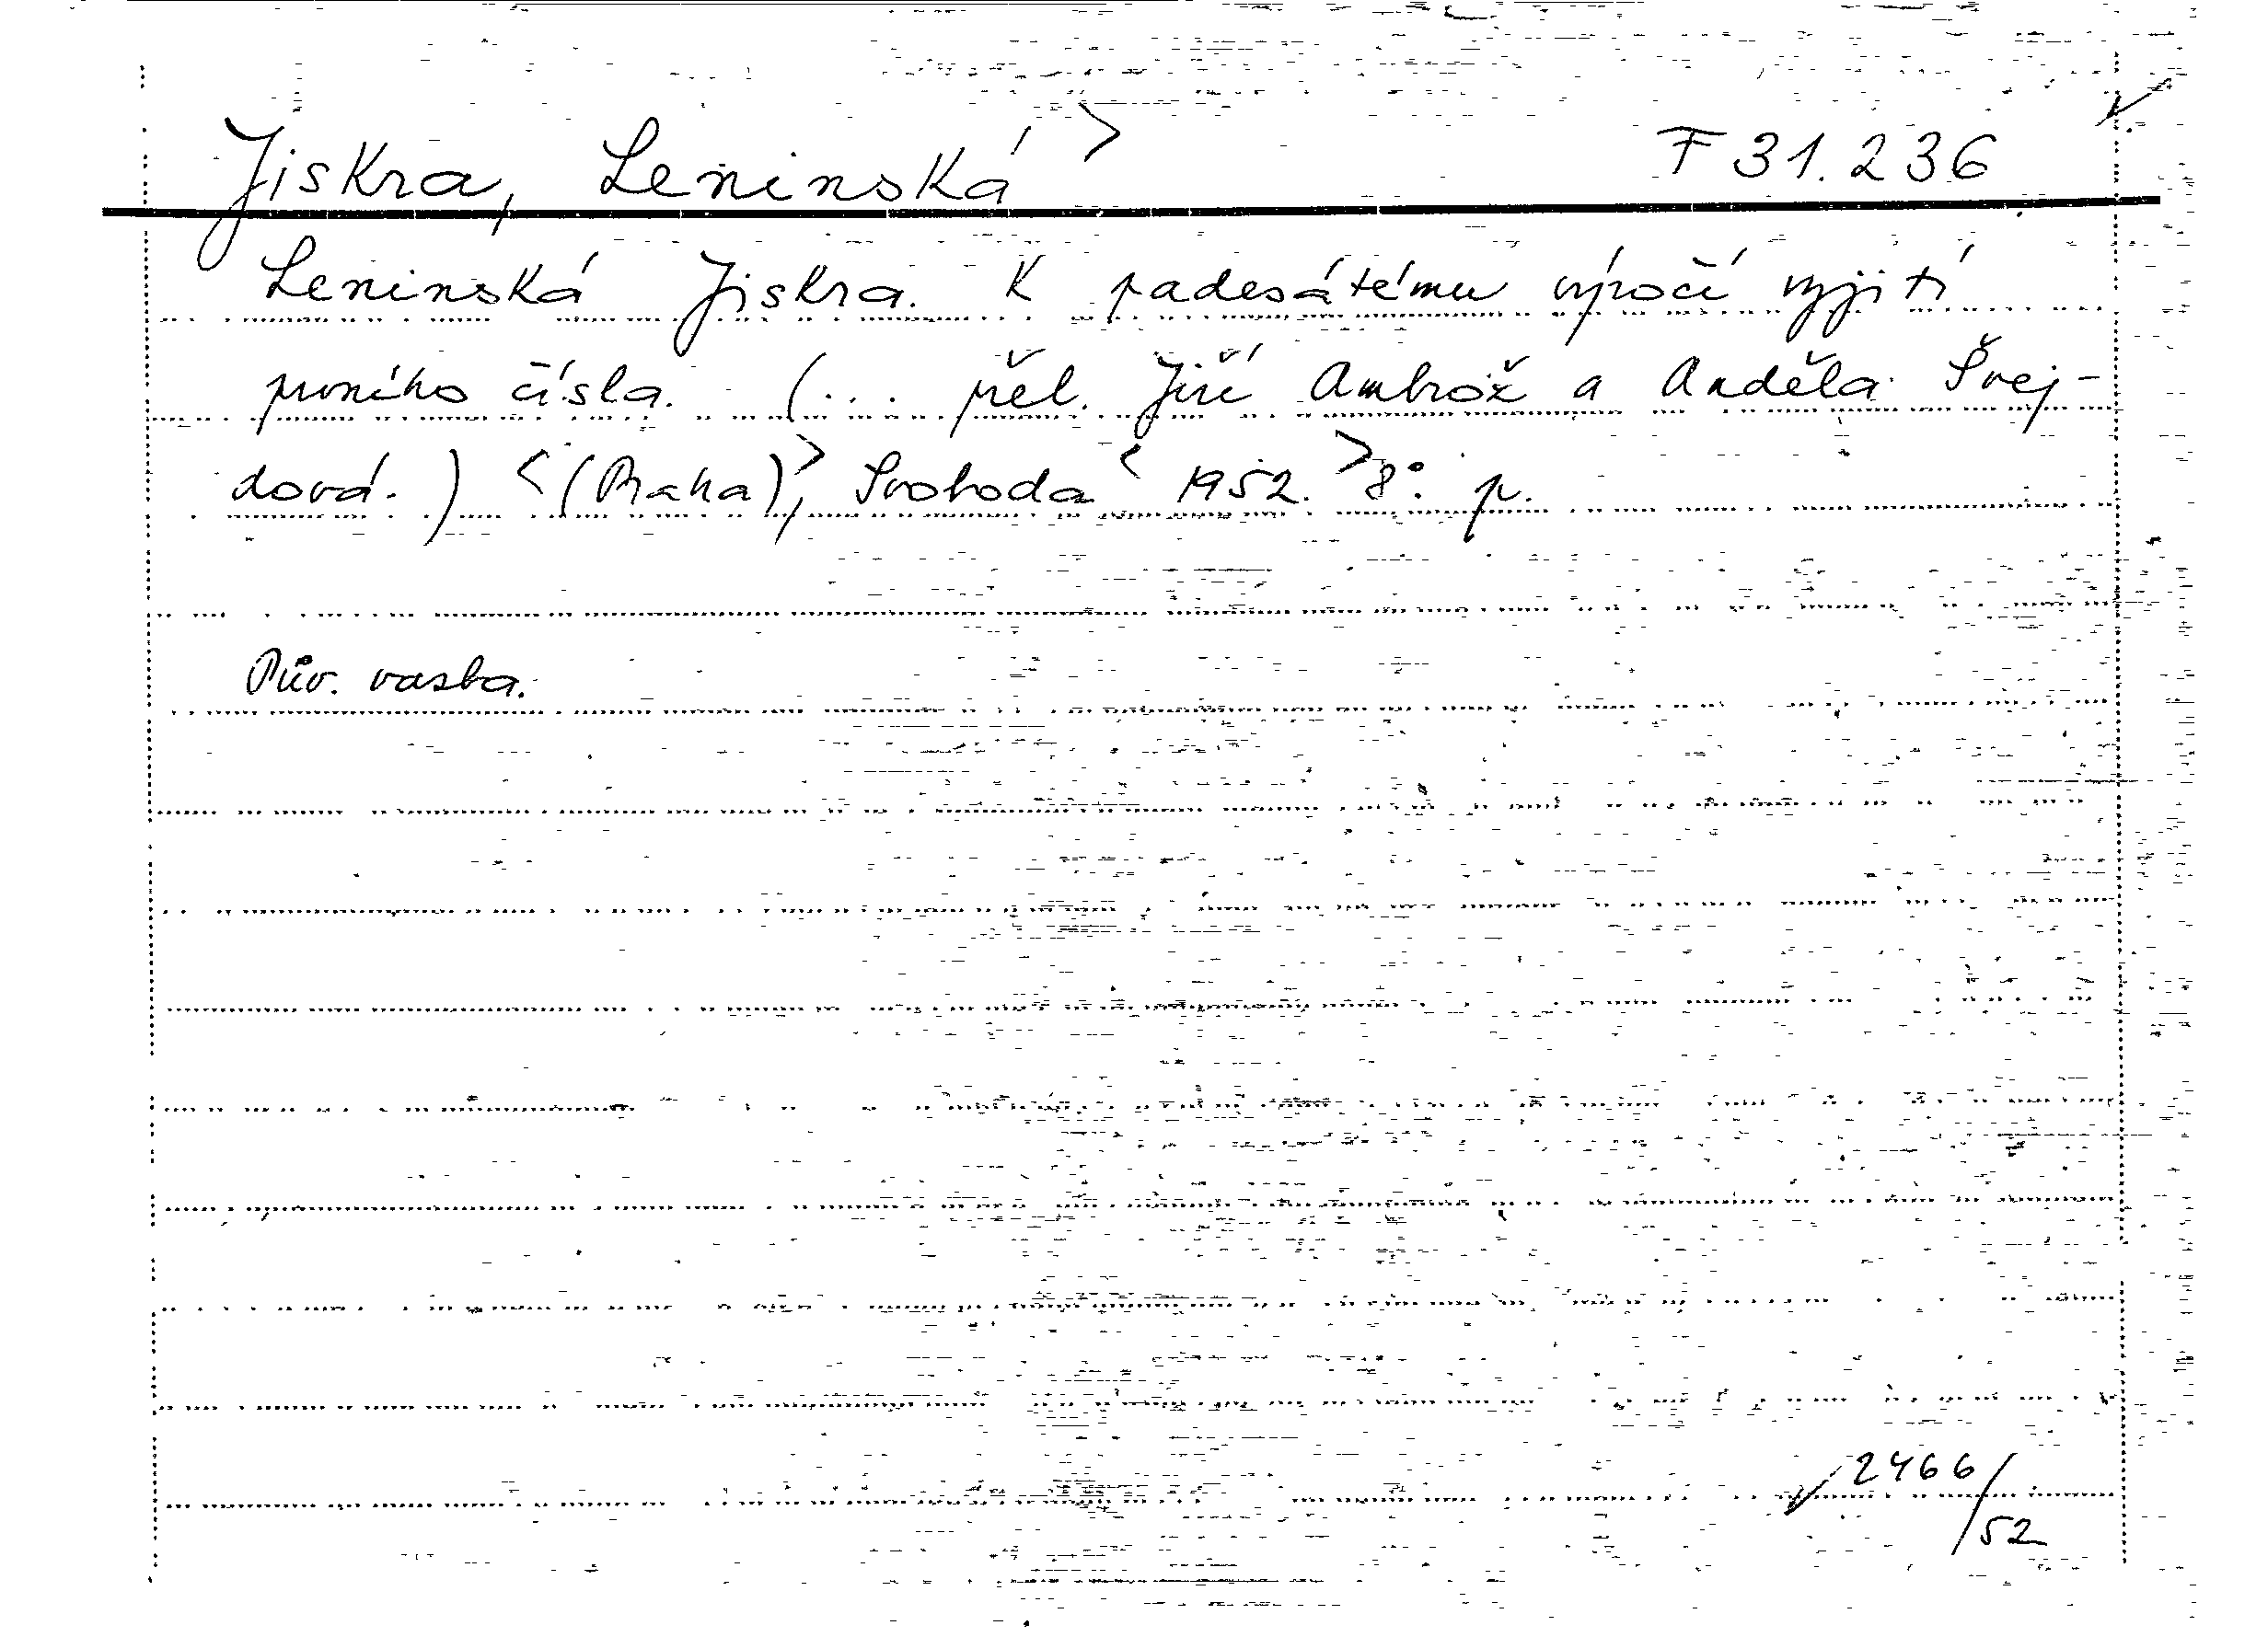 Jiskra, Leninská > F 31.236
Leninská Jiskra. K padesátému výročí vyjití
prvního čísla. (... přel. Jiří Ambrož a Anděla Švej-
dová.) <(Praha),> Svoboda < 1952. > 8°. p.
Pův. vazba.
2466/
52